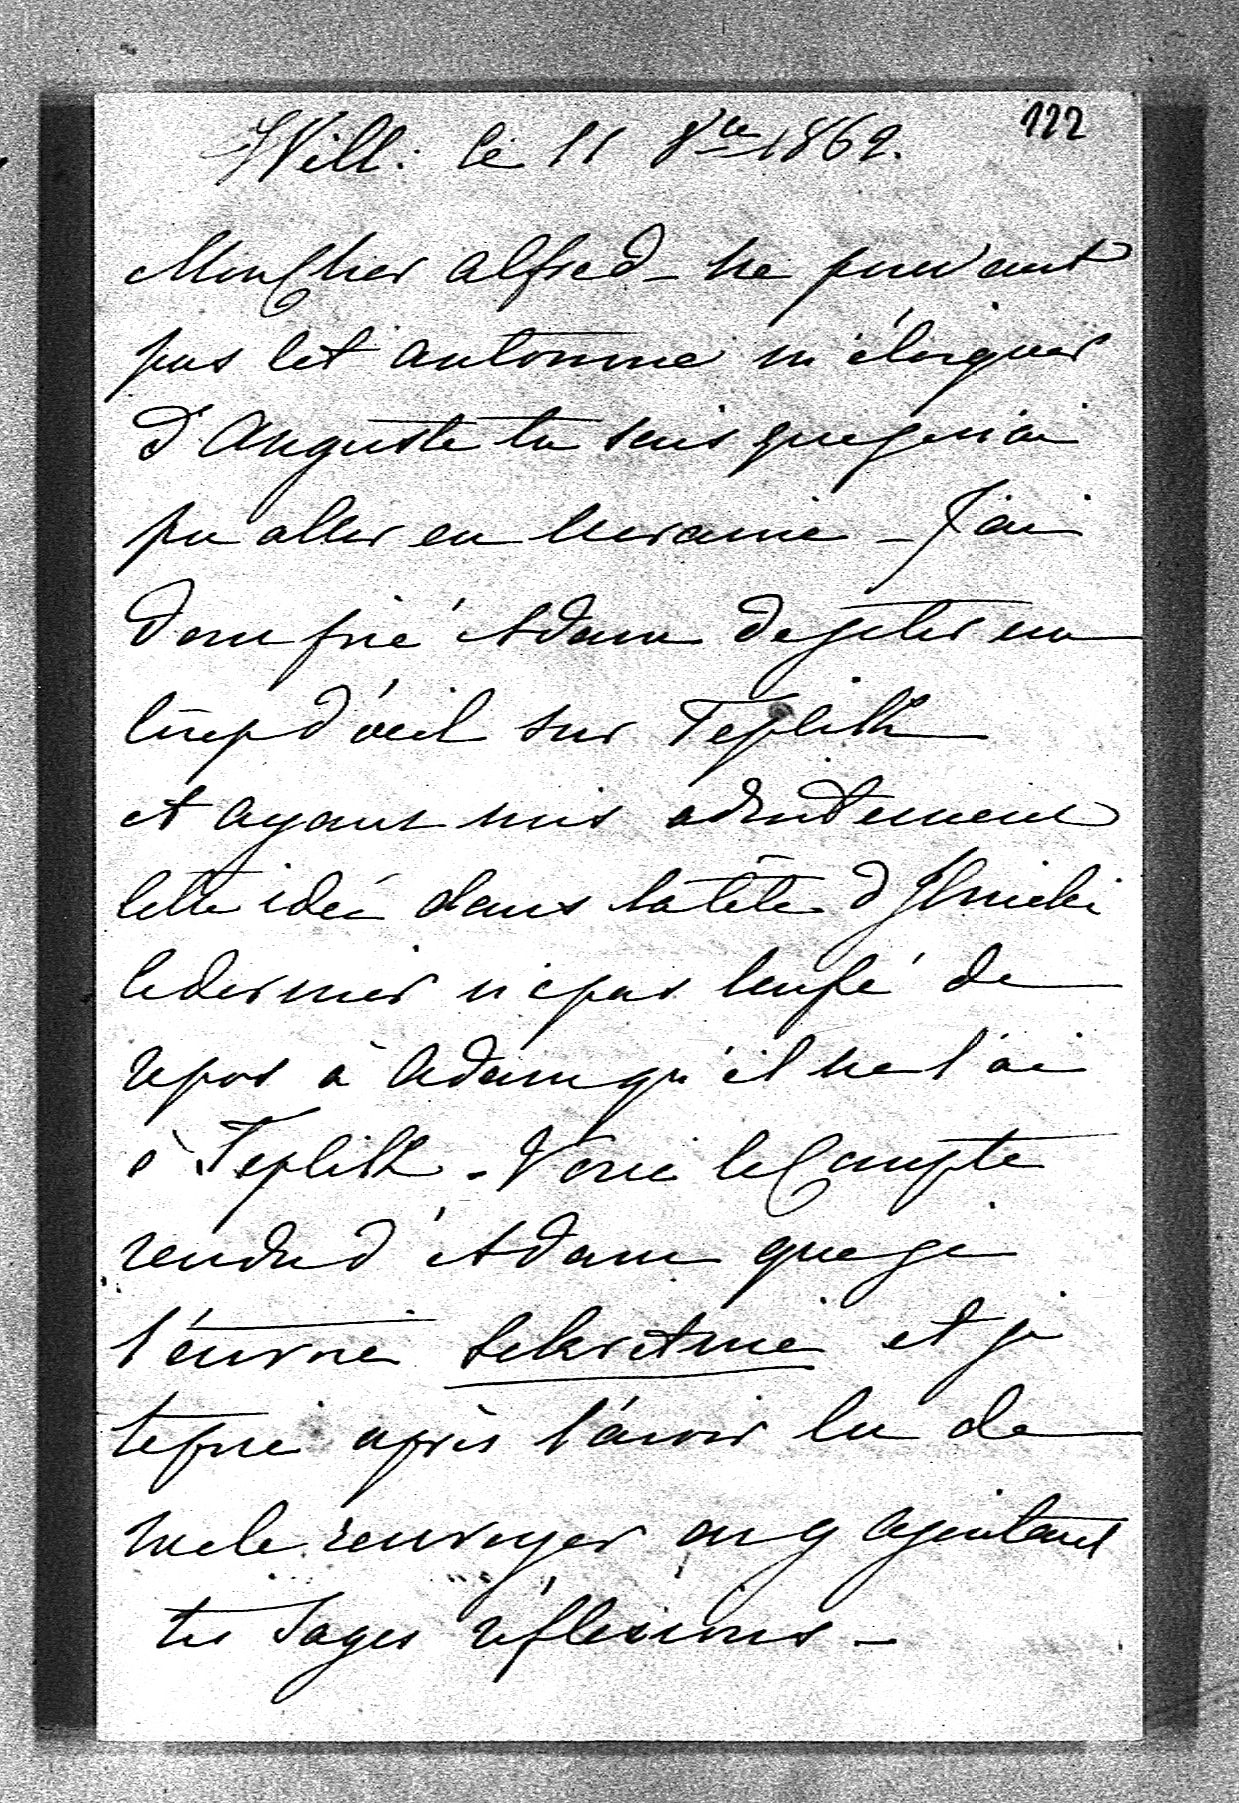 122
Will: le 11 8bre 1862.
Mon Cher Alfred – ne pouvant
pas cet automne m'éloigner
d'Auguste tu sais que je n'ai
pu aller en Ucraine – J'ai
donc prié Adam de jeter un
coup d'œil sur Teplik
et ayant mis adroitement
cette idée dans la tête d'Ilnicki
ce dernier n'e pas cessé de
repos à Adam qu'il ne l'ai
à Teplik – Voici le Compte
rendu d'Adam que je
t'envoie sekretnie et je
te prie après l'avoir lu de
me le renvoyer en y ajoutant
tes sages réflexions –